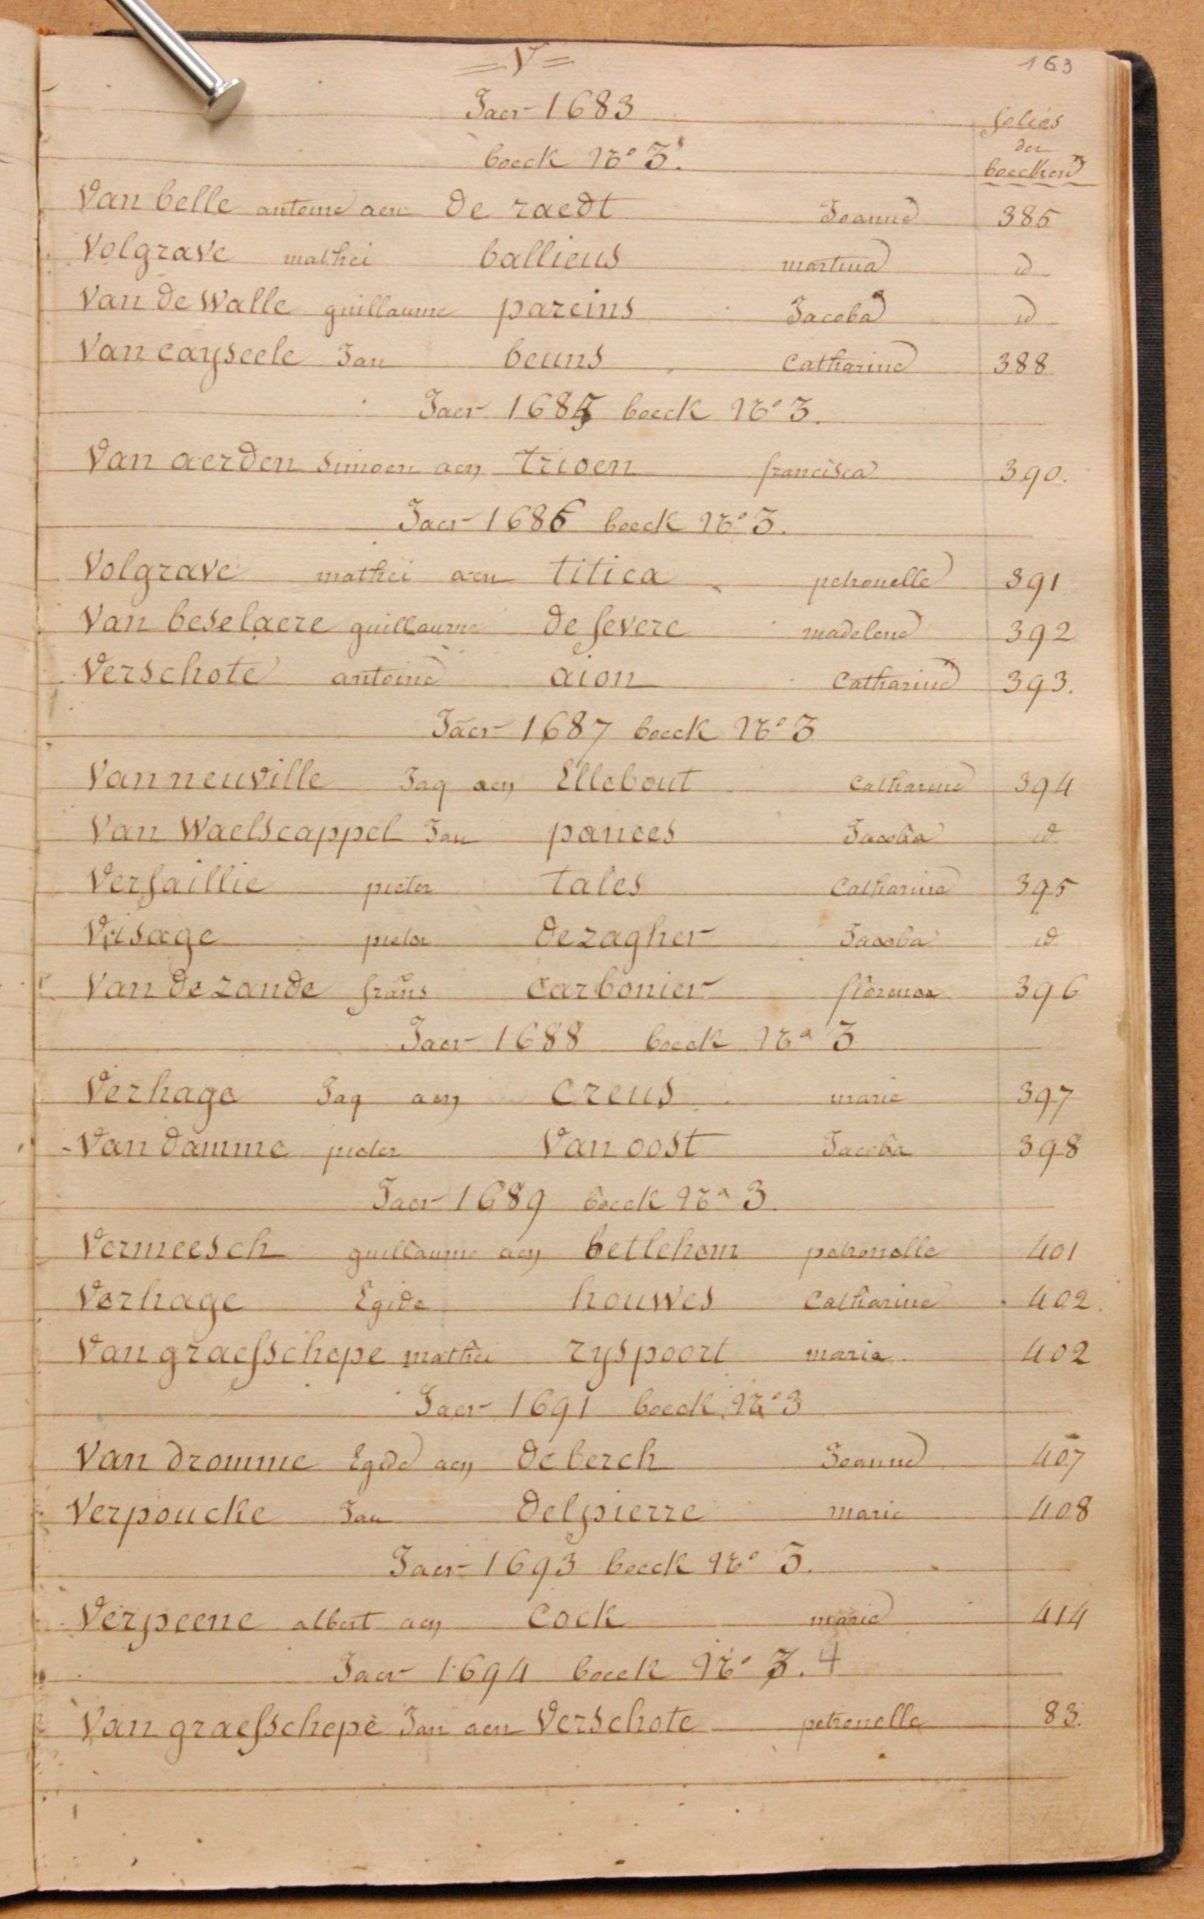 =V=
163
Jaer 1683
folies
der
boecken
boeck N° 3.
Van belle antoine aen de raedt Joanne 385
Volgrave mathei ballieus martina id
Van de Walle guillaume pareins Jacoba id
Van cayseele Jan beuns Catharine 388
Jaer 1685 boeck N° 3.
Van aerden simoen aen trioen francisca 390.
Jaer 1686 boeck N° 3.
Volgrave mathei aen titica petronelle 391
Van beselaere guillaume de severe madelene 392
Verschote antoine aion Catharine 393.
Jaer 1687 boeck N° 3
Van neuville Jaq aen Ellebout Catharine 394
Van Waelscappel Jan panees Jacoba id.
Versaillie pieter tales Catharine 395
Visage pieter dezagher Jacoba id
Van de zande frans carbonier 396
Jaer 1688 boeck N° 3
Verhage Jaq aen creus marie 397
Van damme pieter Van oost Jacoba 398
Jaer 1689 boeck N° 3.
Vermeesch guillaume aen betlehem petronelle 401
Verhage Egide houwes Catharine 402.
Van graesschepe mathei ryspoort maria 402
Jaer 1691 boeck N° 3
Van dromme Egide aen de berch Joanne 407
Verpoucke Jan delpierre marie 408
Jaer 1693 boeck N° 3.
Verpeene albert aen cock marie 414
Jaer 1694 boeck N° 3. 4
Van graesschepe Jan aen Verschote petronelle 83.